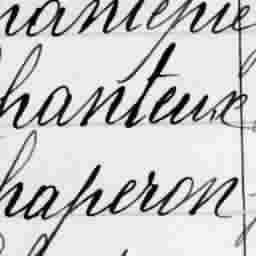 hantepie
hanteux
haperon